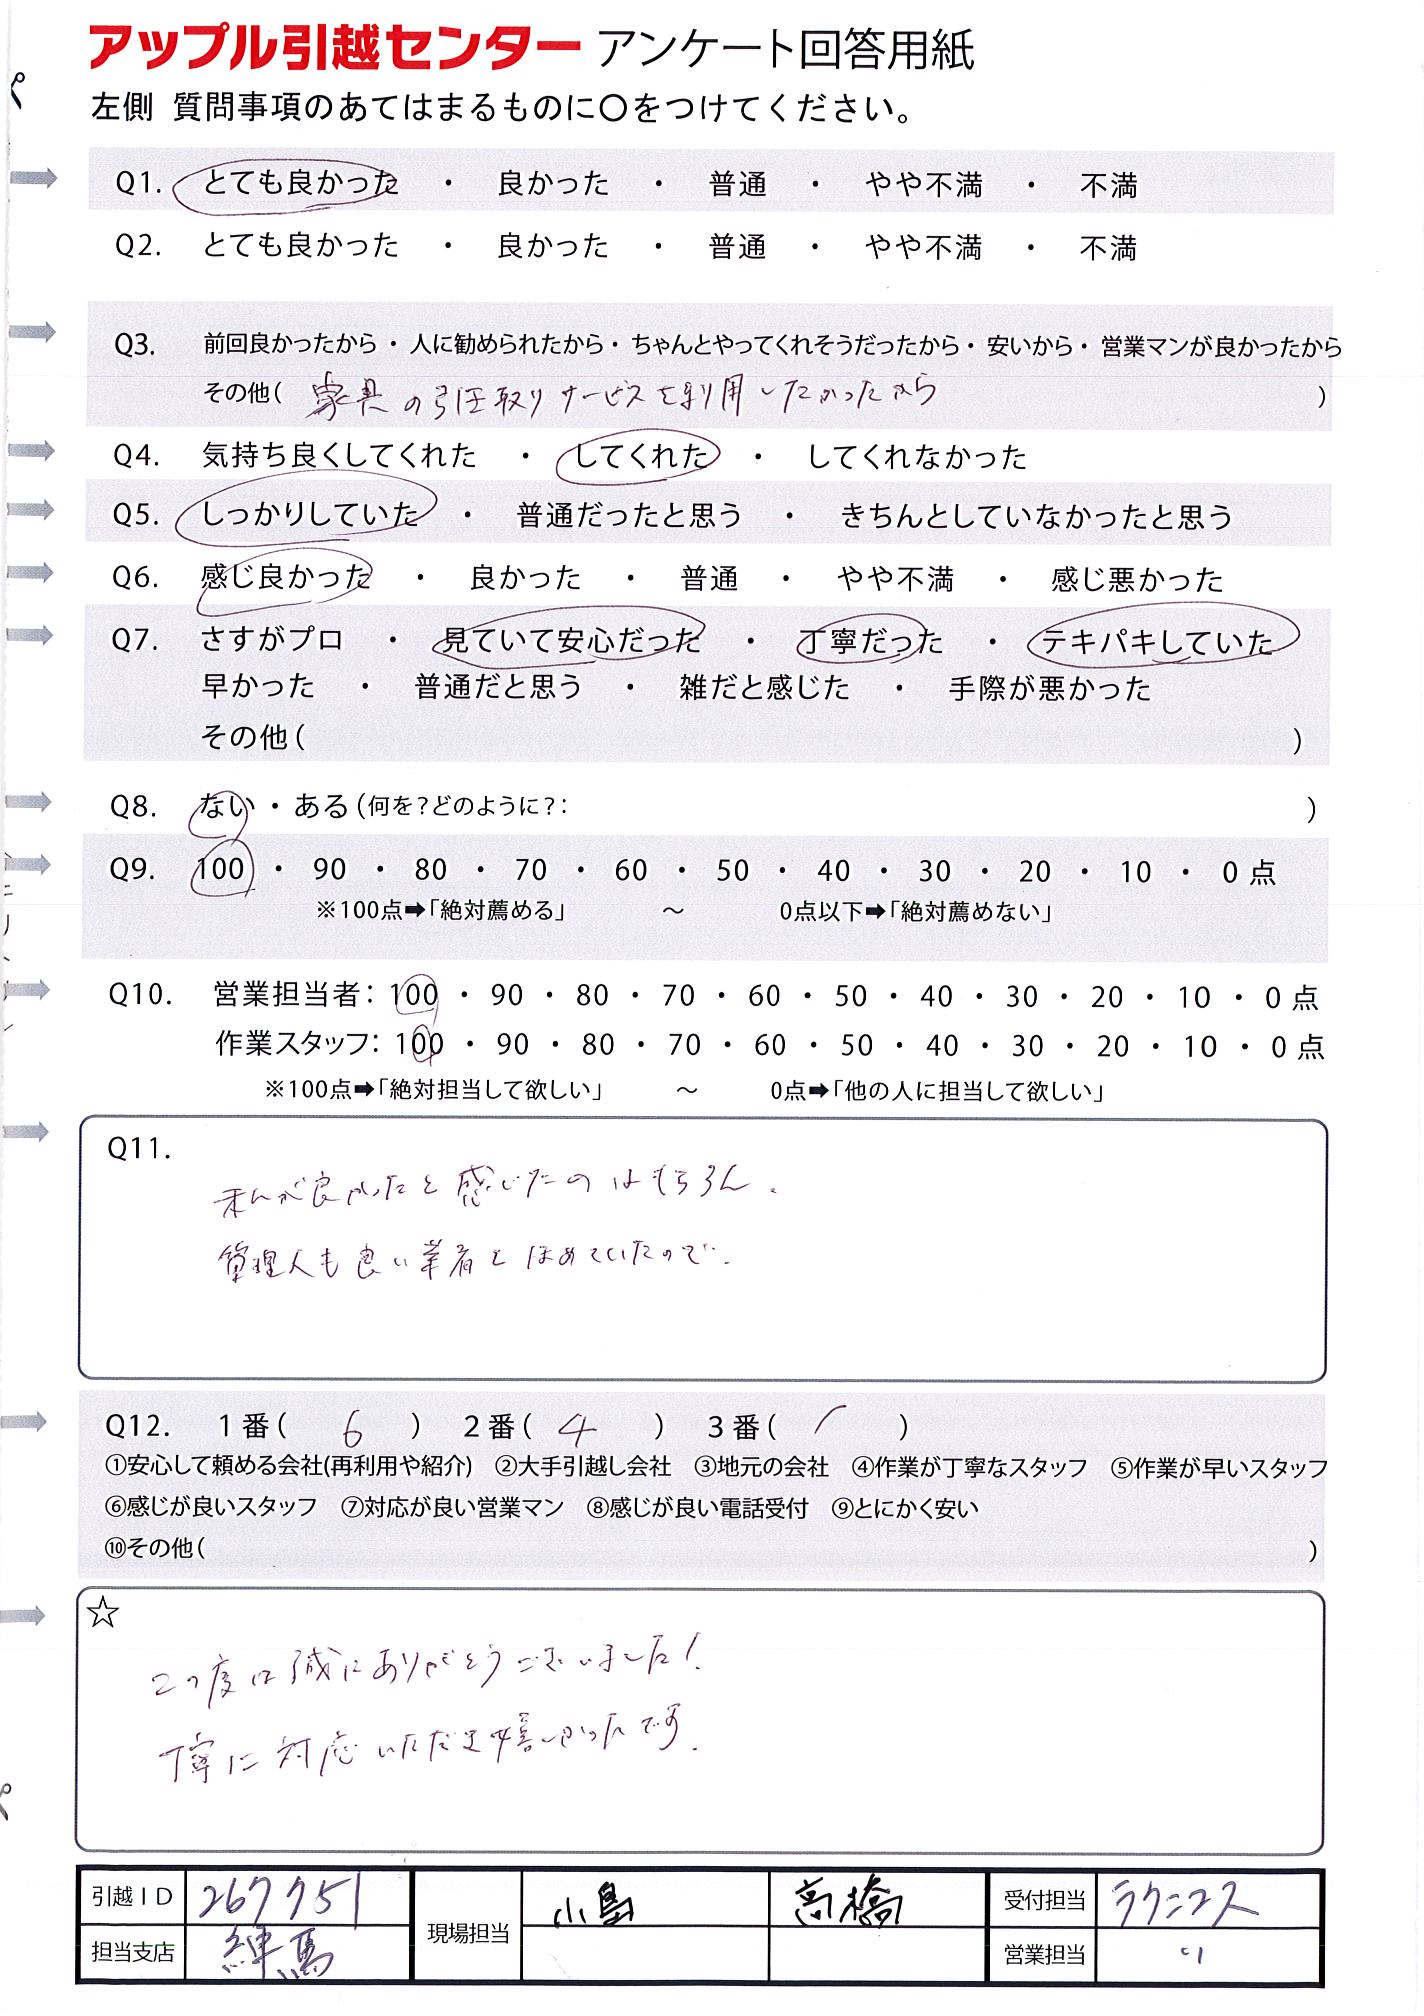 アップル引越センター アンケート回答用紙
左側 質問事項のあてはまるものに○をつけてください。
Q1. とても良かった ・ 良かった ・ 普通 ・ やや不満 ・ 不満
Q2. とても良かった ・ 良かった ・ 普通 ・ やや不満 ・ 不満
Q3. 前回良かったから・人に勧められたから・ちゃんとやってくれそうだったから・安いから・営業マンが良かったから
その他( 家具の引き取りサービスを利用したかったから )
Q4. 気持ち良くしてくれた ・ してくれた ・ してくれなかった
Q5. しっかりしていた ・ 普通だったと思う ・ きちんとしていなかったと思う
Q6. 感じ良かった ・ 良かった ・ 普通 ・ やや不満 ・ 感じ悪かった
Q7. さすがプロ ・ 見ていて安心だった ・ 丁寧だった ・ テキパキしていた
早かった ・ 普通だと思う ・ 雑だと感じた ・ 手際が悪かった
その他( )
Q8. ない・ある(何を?どのように?: )
Q9. 100 ・ 90 ・ 80 ・ 70 ・ 60 ・ 50 ・ 40 ・ 30 ・ 20 ・ 10 ・ 0 点
※100点➡「絶対薦める」 ～ 0点以下➡「絶対薦めない」
Q10. 営業担当者: 100 ・ 90 ・ 80 ・ 70 ・ 60 ・ 50 ・ 40 ・ 30 ・ 20 ・ 10 ・ 0 点
作業スタッフ: 100 ・ 90 ・ 80 ・ 70 ・ 60 ・ 50 ・ 40 ・ 30 ・ 20 ・ 10 ・ 0 点
※100点➡「絶対担当して欲しい」 ～ 0点➡「他の人に担当して欲しい」
Q11.
私が良かったと感じたのはもちろん、
管理人も良い業者とほめていたので.
Q12. 1番( 6 ) 2番( 4 ) 3番( 1 )
①安心して頼める会社(再利用や紹介) ②大手引越し会社 ③地元の会社 ④作業が丁寧なスタッフ ⑤作業が早いスタッフ
⑥感じが良いスタッフ ⑦対応が良い営業マン ⑧感じが良い電話受付 ⑨とにかく安い
⑩その他( )
☆
この度は誠にありがとうございました!
丁寧に対応いただき嬉しかったです.
引越ID 267751 現場担当 小島 高橋 受付担当 ラクニコス
担当支店 練馬 営業担当 〃